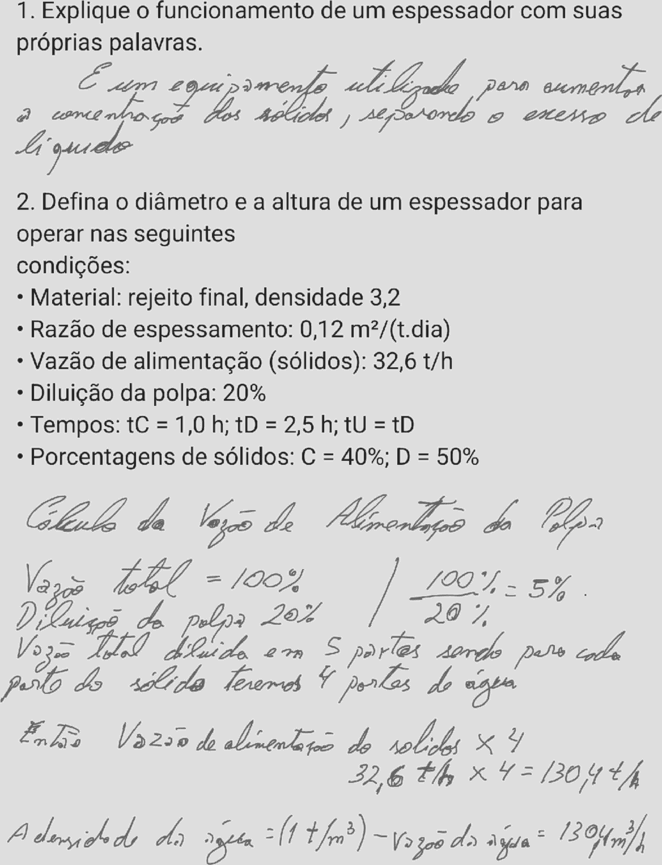 1. Explique o funcionamento de um espessador com suas
próprias palavras.
E um equipamento utilizado para aumentar
a concentração dos sólidos, separando o excesso de
líquido
2. Defina o diâmetro e a altura de um espessador para
operar nas seguintes
condições:
• Material: rejeito final, densidade 3,2
• Razão de espessamento: 0,12 m²/(t.dia)
• Vazão de alimentação (sólidos): 32,6 t/h
• Diluição da polpa: 20%
• Tempos: tC = 1,0 h; tD = 2,5 h; tU = tD
• Porcentagens de sólidos: C = 40%; D = 50%
Cálculo da Vazão de Alimentação da Polpa
Vazão total = 100% / 100% = 5%.
Diluição da polpa 20% / 20%
Vazão total diluida em 5 partes sendo para cada
parte do sólido teremos 4 partes de água
Então Vazão de alimentação do solidos x 4
32,6 t/h x 4 = 130,4 t/h
A densidade da água = (1 t/m³) - Vazão da água = 130,4 m³/h